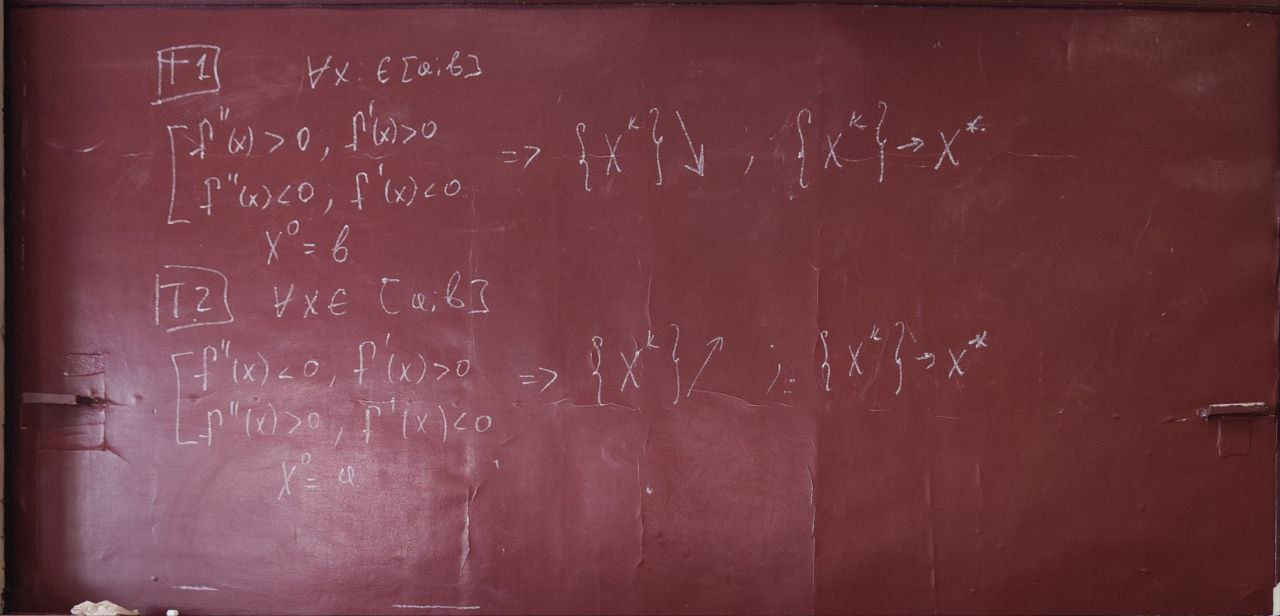 T1 ∀x ∈ [a;b]
f''(x) > 0, f'(x) > 0
f''(x) < 0, f'(x) < 0 => {x^k} ↘ ; {x^k} → x*
x^0 = b
T2 ∀x ∈ [a;b]
f''(x) < 0, f'(x) > 0
f''(x) > 0, f'(x) < 0 => {x^k} ↗ ; {x^k} → x*
x^0 = a